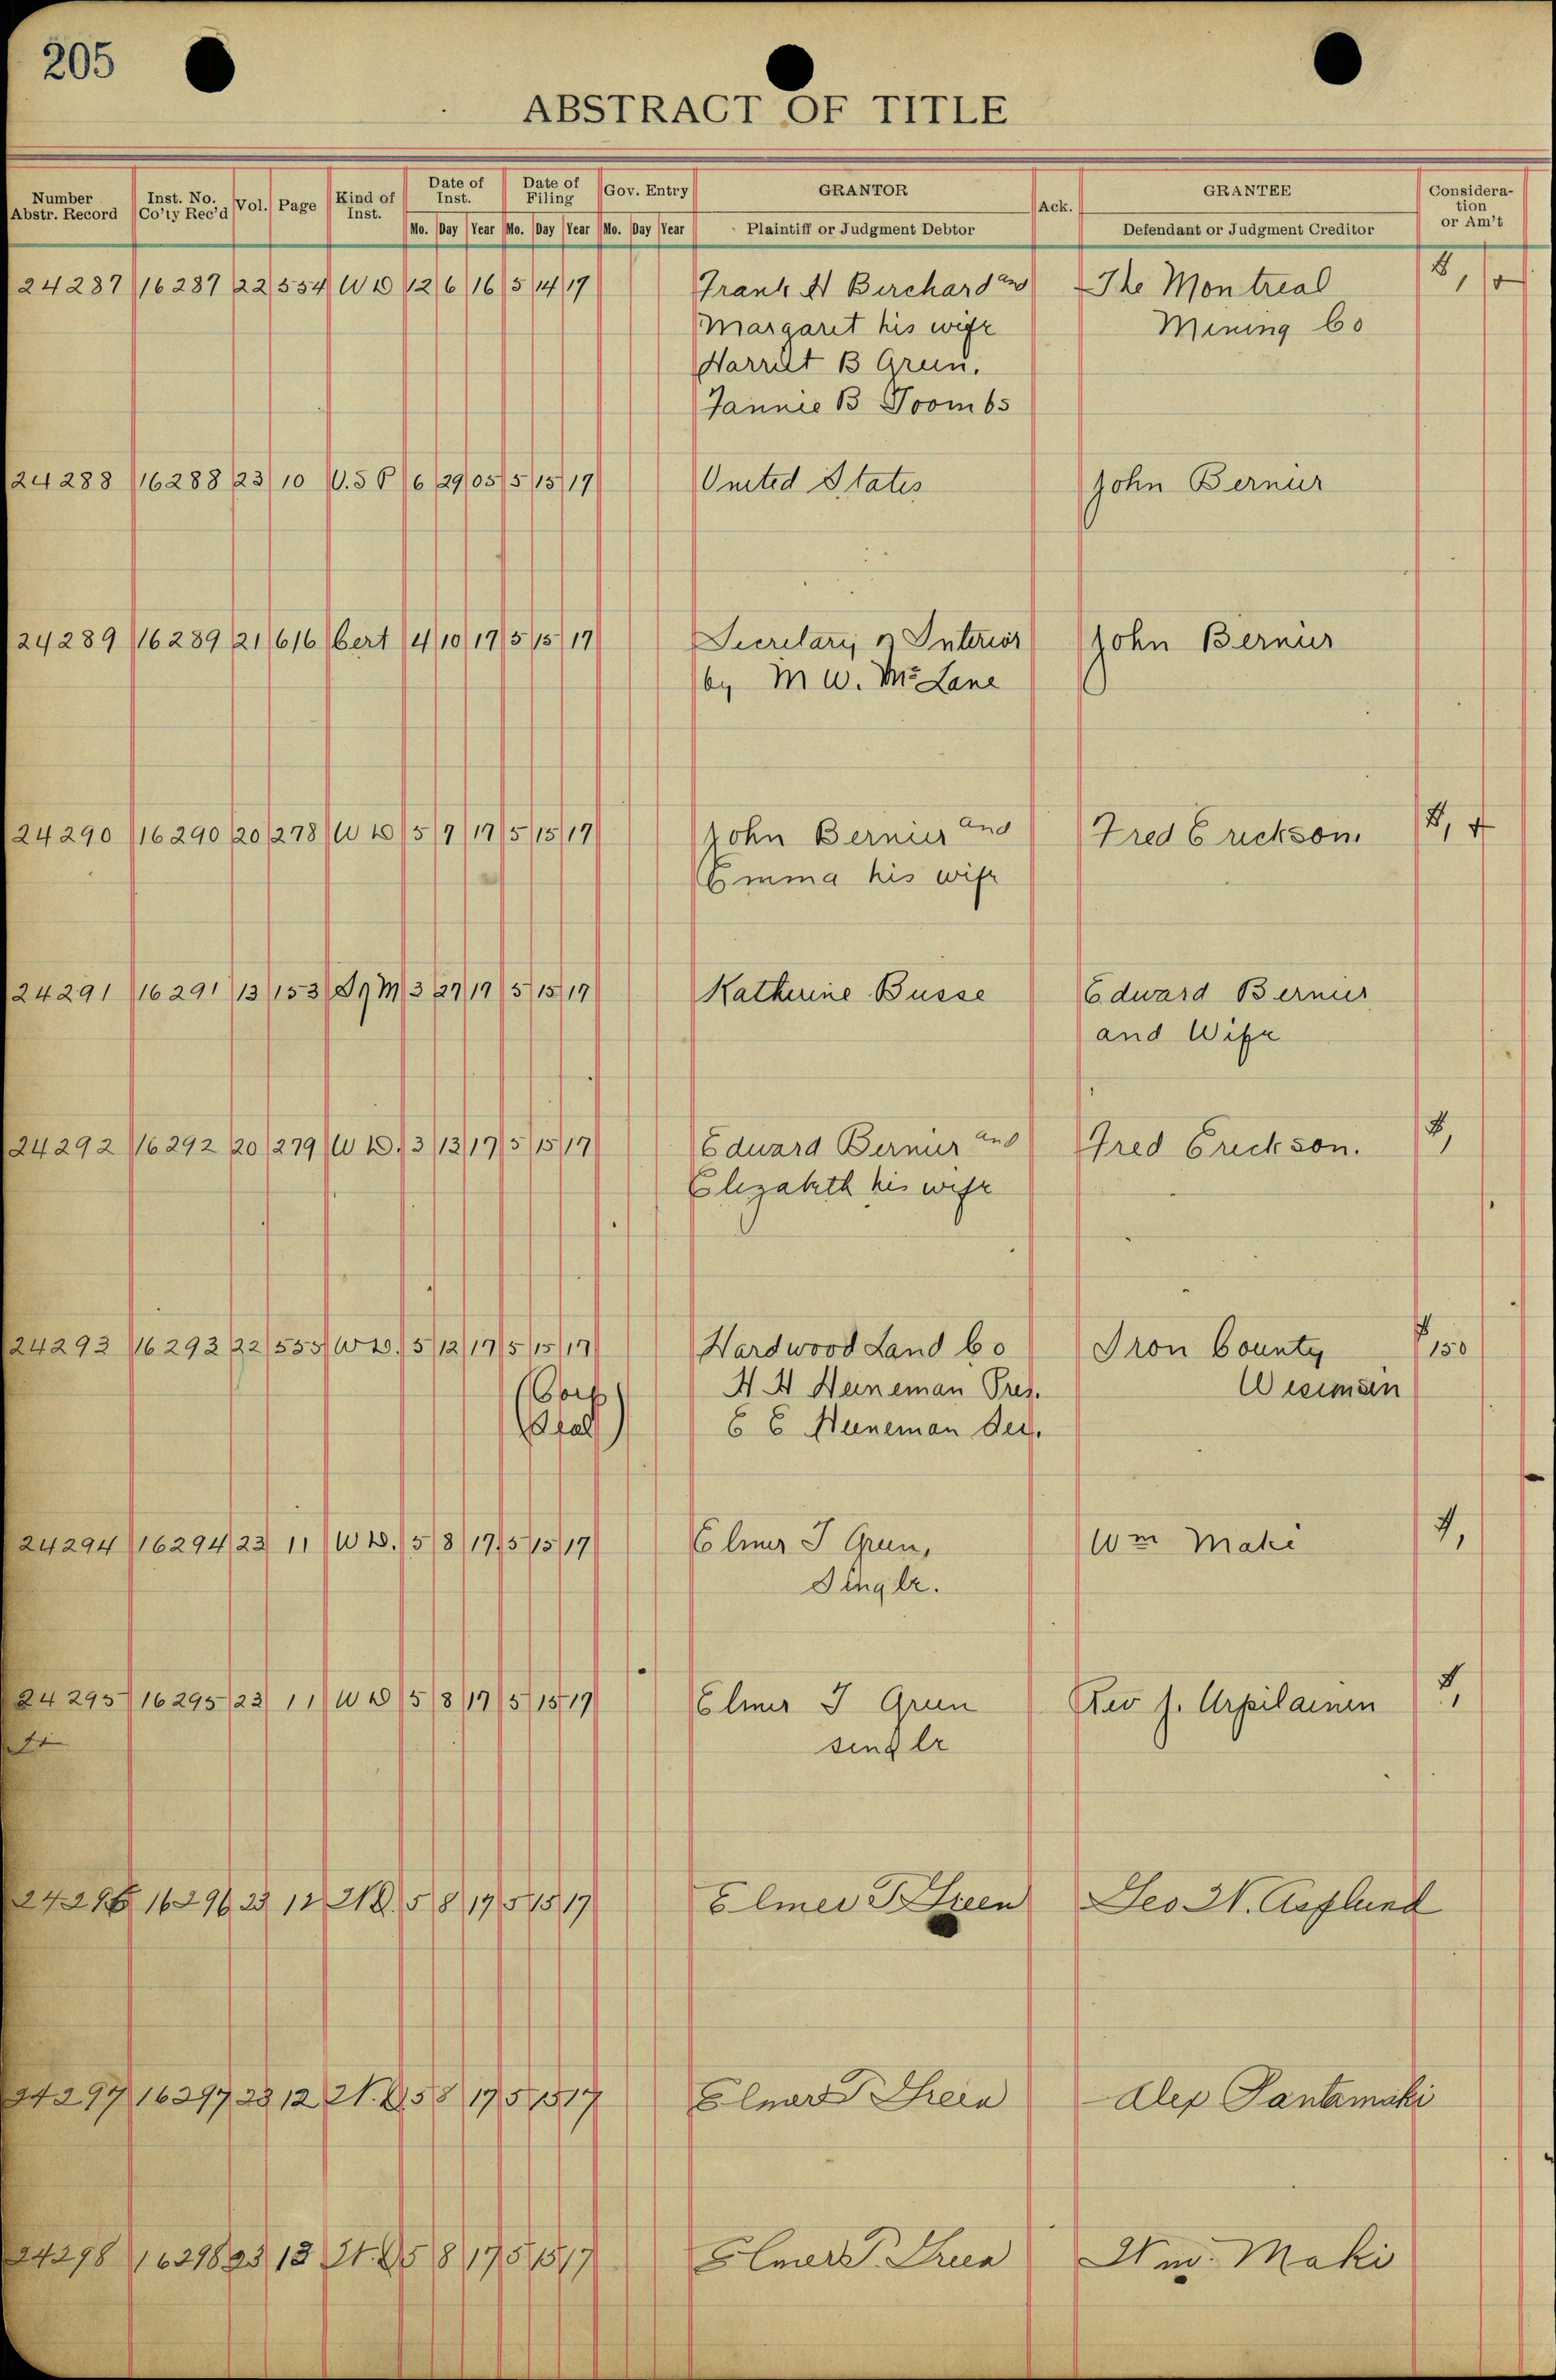 205
ABSTRACT OF TITLE
Number Abstr. Record Inst. No. Co'ty Rec'd Vol. Page Kind of Inst. Date of Inst. Date of Filing Gov. Entry GRANTOR Ack. GRANTEE Consideration or Am't
Mo. Day Year Mo. Day Year Mo. Day Year Plaintiff or Judgment Debtor Defendant or Judgment Creditor
24287 16287 22 554 W D 12 6 16 5 14 17 Frank H Birchard and The Montreal
Margaret his wife Mining Co
Harriet B Green.
Fannie B Toombs
24288 16288 23 10 U.S P 6 29 05 5 15 17 United States John Bernier
24289 16289 21 616 Cert 4 10 17 5 15 17 Secretary of Interior John Bernier
by M W. McLane
24290 16290 20 278 W D 5 7 17 5 15 17 John Bernier and Fred Erickson.
Emma his wife
24291 16291 13 153 Sg M 3 27 17 5 15 17 Katherine Busse Edward Bernier
and Wife
24292 16292 20 279 W D. 3 13 17 5 15 17 Edward Bernier and Fred Erickson. $,
Elizabeth his wife
24293 16293 22 555 W D. 5 12 17 5 15 17 Hardwood Land Co Iron County $150
(Corp H H Heineman Pres. Wisconsin
Seal) E E Heineman Sec.
24294 16294 23 11 W D. 5 8 17 5 15 17 Elmer T Green, Wm Maki
Single.
24295 16295 23 11 W D 5 8 17 5 15 17 Elmer T Green Rev J. Urpilainen
single
24296 16296 23 12 W D. 5 8 17 5 15 17 Elmer T Green Geo W. Asplund
24297 16297 23 12 W. D 5 8 17 5 15 17 Elmer T Green Alex Pantamaki
24298 16298 23 13 W. D 5 8 17 5 15 17 Elmer T. Green Wm. Maki